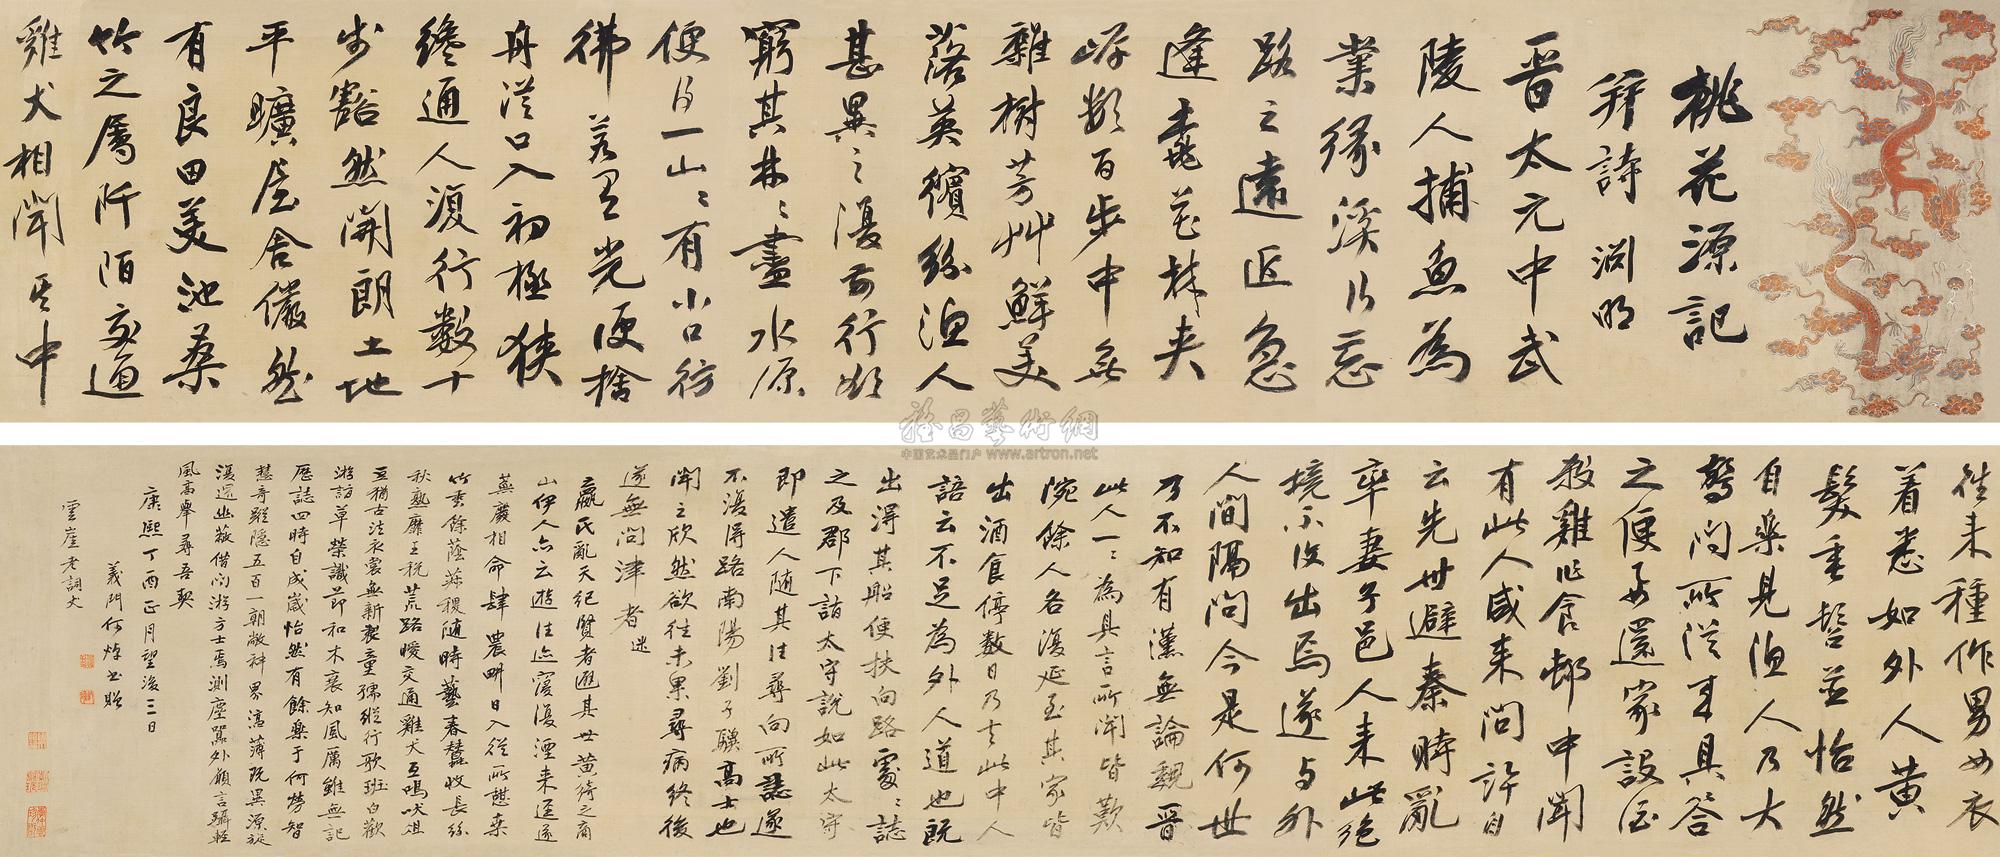 桃花源記
并詩 淵明
晉太元中武
陵人捕魚為
業緣溪行忘
路之遠近忽
逢桃花林夾
岸數百步中無
雜樹芳艸鮮美
落英繽紛漁人
甚異之復前行欲
窮其林林盡水源
便得一山山有小口彷
彿若有光便捨
舟從口入初極狹
纔通人復行數十
步豁然開朗土地
平曠屋舍儼然
有良田美池桑
竹之屬阡陌交通
雞犬相聞其中
往來種作男女衣
着悉如外人黃
髮垂髫並怡然
自樂見漁人乃大
驚問所從來具答
之便要還家設酒
殺雞作食邨中聞
有此人咸來問訊自
云先世避秦時亂
率妻子邑人來此絕
境不復出焉遂與外
人間隔問今是何世
乃不知有漢無論魏晉
此人一一為具言所聞皆歎
惋餘人各復延至其家皆
出酒食停數日乃去此中人
語云不足為外人道也既
出得其船便扶向路處處誌
之及郡下詣太守說如此太守
即遣人隨其往尋向所誌遂
迷不復得路南陽劉子驥高士也
聞之欣然欲往未果尋病終後
遂無問津者
嬴氏亂天紀賢者避其世黃綺之商
山伊人亦云逝往迹寖復湮來逕遂
蕪廢相命肆農畊日入從所憩桑
竹垂餘蔭菽稷隨時藝春蠶收長絲
秋熟靡王稅荒路曖交通雞犬互鳴吠俎
豆猶古法衣裳無新製童孺縱行歌班白歡
游詣草榮識節和木衰知風厲雖無記
歷誌四時自成歲怡然有餘樂于何勞智
慧奇蹤隱五百一朝敞神界淳薄既異源旋
復還幽蔽借問游方士焉測塵囂外願言躡輕
風高舉尋吾契
康熙丁酉正月望後三日
義門何焯書贈
雲崖老詞丈
雅昌藝術網
中国艺术品门户 www.artron.net